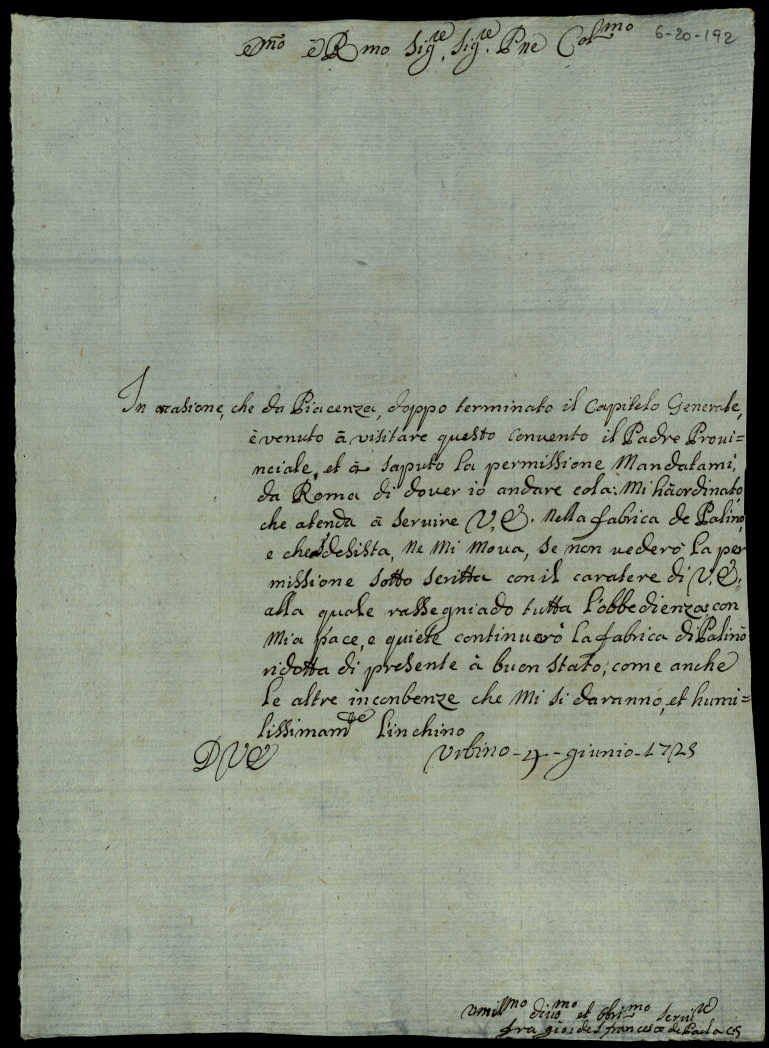 Emo e Rmo Sigre, Sigre Pne Colmo
6-20-192
In ocasione, che da Piacenza, doppo terminato il Capitolo Generale,
è venuto à visitare questo convento il Padre Proui=
nciale, et à saputo la permissione Mandatami,
da Roma di douer io andare cola: Mi hà ordinato,
che atenda à seruire V.E. nella fabrica de Palino,
e che desista, ne Mi moua, se non uederò la per
missione sotto scritta con il caratere di V.E.
alla quale rassegniado tutta l'obbedienza: con
Mia pace, e quiete continuerò la fabrica di Palino
ridotta di presente à buon stato, come anche
le altre inconbenze che Mi si daranno, et humi=
lissimamte l'inchino
D V E Urbino-4-giunio-1725
Umillmo diuomo et obrimo Seruire
fra gio: de S francesco de Paola